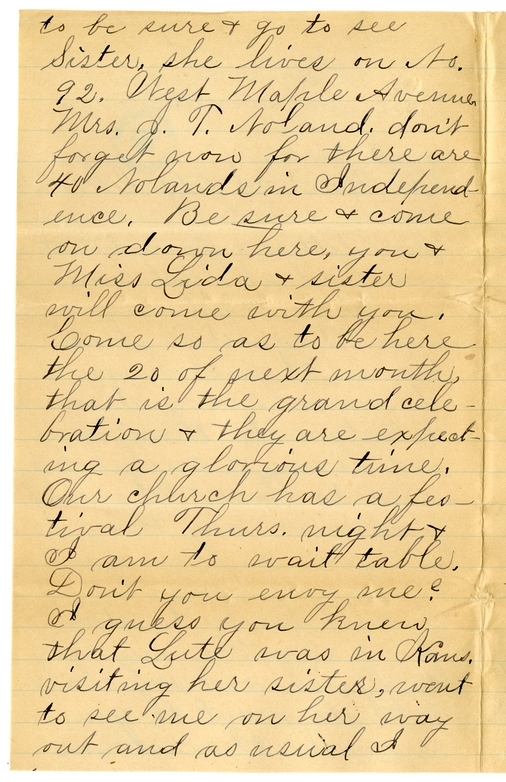 to be sure & go to see
Sister, she lives on No.
92. West Maple Avenue
Mrs. J. T. Noland. don't
forget now for there are
40 Nolands in Independ-
ence. Be sure & come
on down here, you &
Miss Lida & sister
will come with you.
Come so as to be here
the 20 of next month,
that is the grand cele-
bration & they are expect-
ing a glorious time.
Our church has a fes-
tival Thurs. night &
I am to wait table.
Don't you envy me?
I guess you knew
that Lute was in Kans.
visiting her sister, went
to see me on her way
out and as usual I